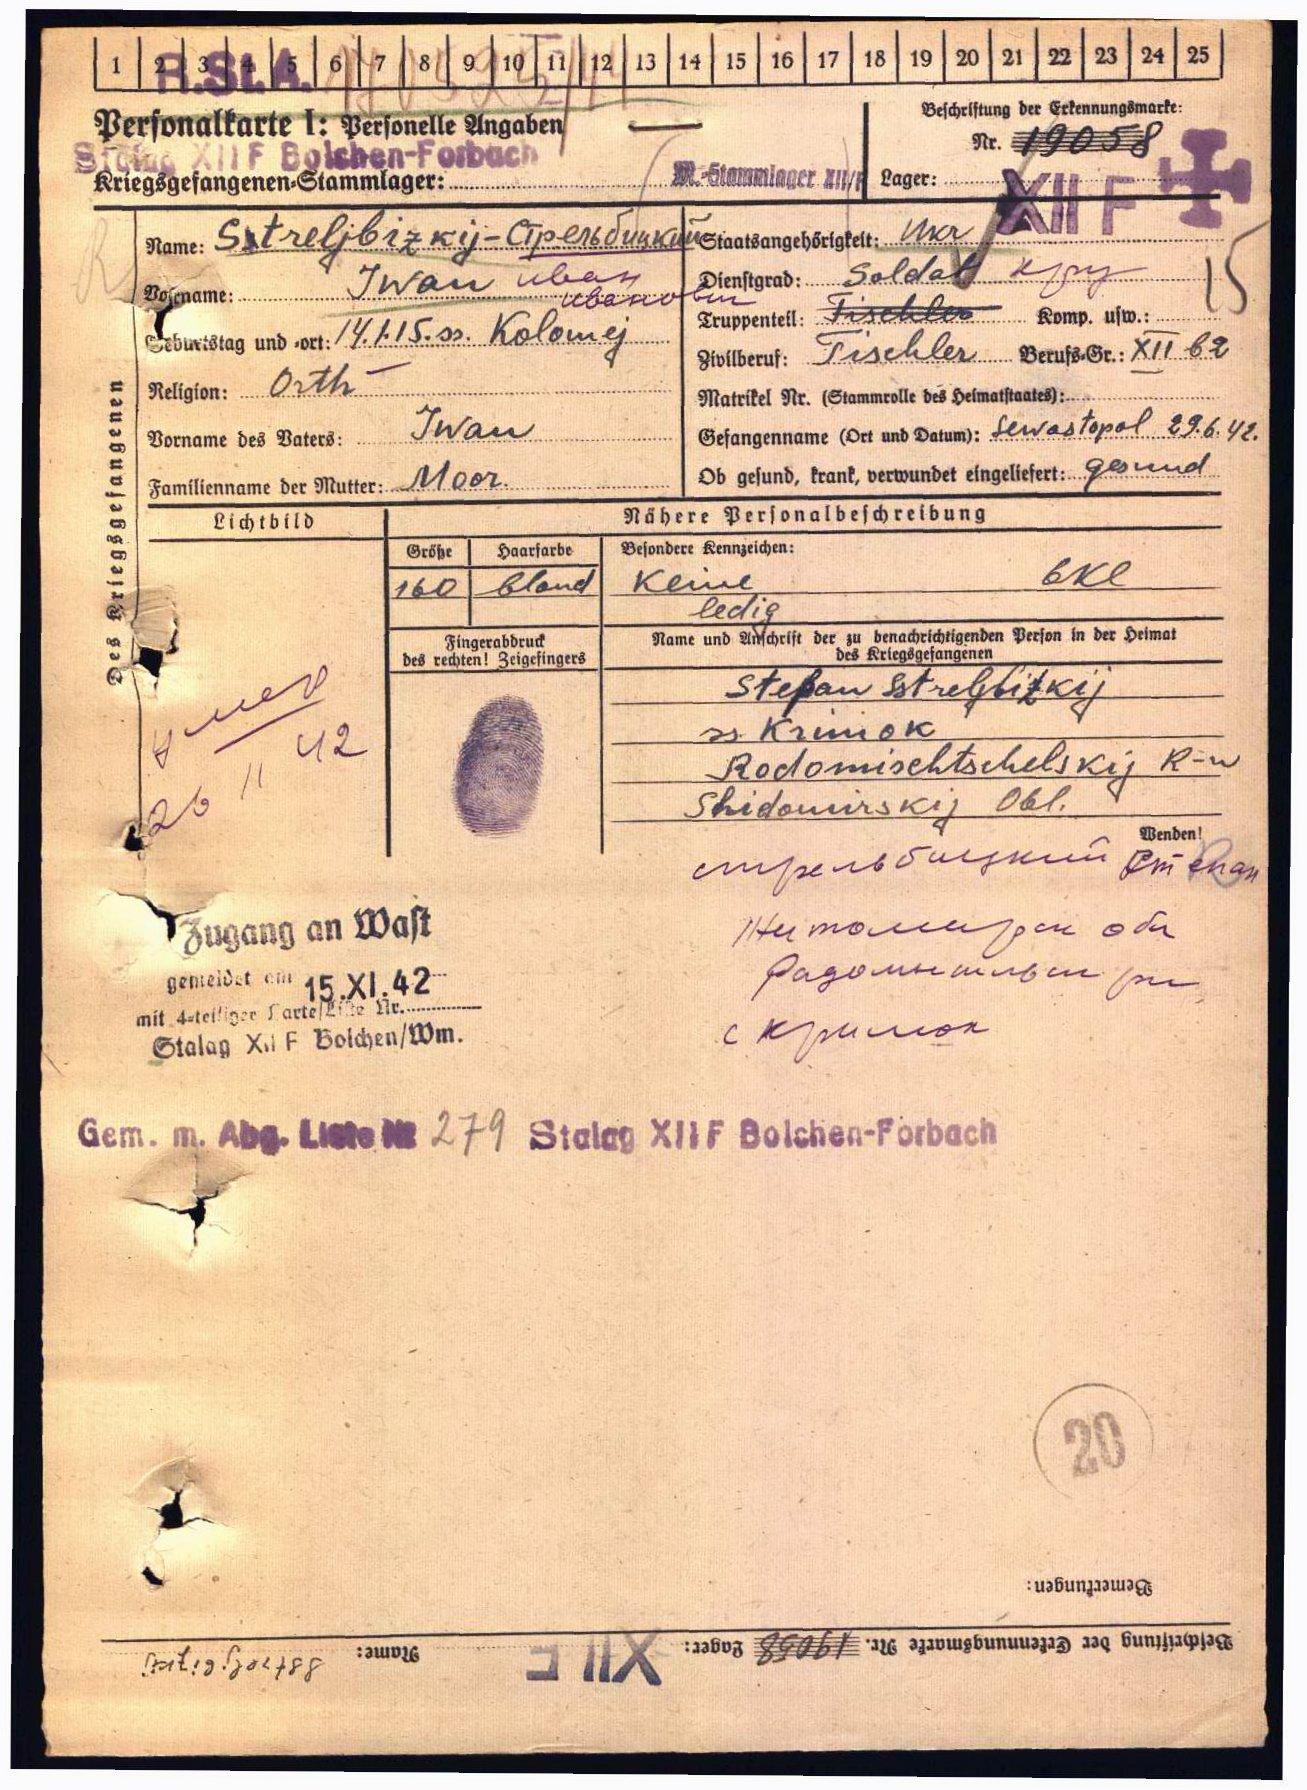 1 2 3 4 5 6 7 8 9 10 11 12 13 14 15 16 17 18 19 20 21 22 23 24 25
R.St.A.
Personalkarte I: Personelle Angaben
Stalag XII F Bolchen-Forbach
Kriegsgefangenen-Stammlager: M.-Stammlager XII/F
Beschriftung der Erkennungsmarke:
Nr. 19058
Lager: XII F
Des Kriegsgefangenen
Name: Sstreljbizkij-Стрельбицкий
Vorname: Iwan иван
иванович
Geburtstag und -ort: 14.1.15. ss. Kolomej
Religion: Orth
Vorname des Vaters: Iwan
Familienname der Mutter: Moor.
Staatsangehörigkeit: Ukr
Dienstgrad: Soldat
15
Truppenteil: Tischler Komp. usw.:
Zivilberuf: Tischler Berufs-Gr.: XII b2
Matrikel Nr. (Stammrolle des Heimatstaates):
Gefangenname (Ort und Datum): Sewastopol 29.6.42.
Ob gesund, krank, verwundet eingeliefert: gesund
Lichtbild
Nähere Personalbeschreibung
Größe Haarfarbe Besondere Kennzeichen:
160 blond Keine bkl
ledig
Fingerabdruck
des rechten! Zeigefingers
Name und Anschrift der zu benachrichtigenden Person in der Heimat
des Kriegsgefangenen
Stepan Sstreljbizkij
ss Krimok
Rodomischtschelskij R-n
Shidomirskij Obl.
Wenden!
42
26 11
стрельбицкий Степан
с кримок
Zugang an Wast
gemeldet am 15.XI.42
mit 4-teiliger Karte/Liste Nr.
Stalag XII F Bolchen/Wm.
Gem. m. Abg. Liste Nr 279 Stalag XII F Bolchen-Forbach
20
Bemerkungen:
Beschriftung der Erkennungsmarke Nr. 19058 Lager: XII F Name: Sstreljbizkij